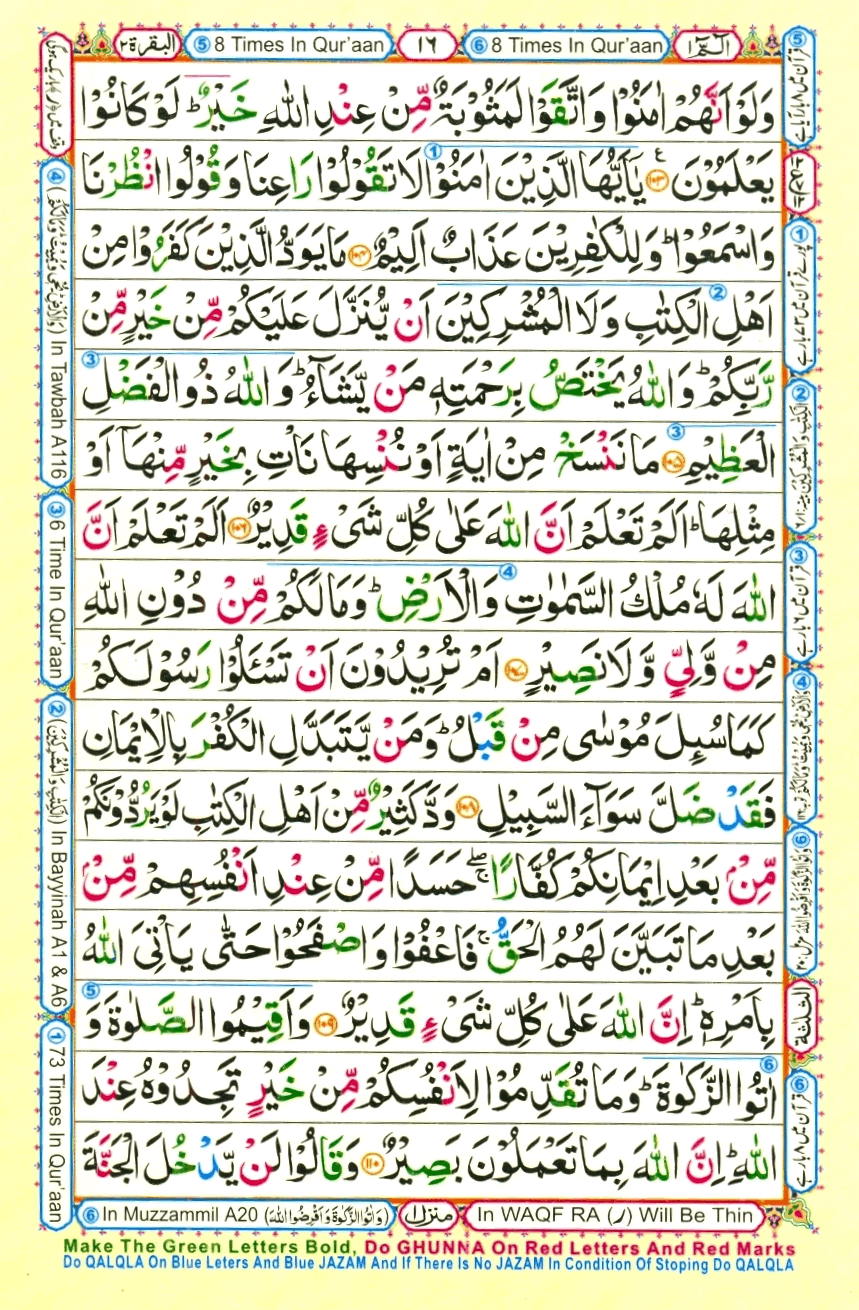 البقرة ٢
⑤ 8 Times In Qur'aan
١٦
⑥ 8 Times In Qur'aan
الٓمّٓ ١
وَلَوْ اَنَّهُمْ اٰمَنُوْا وَاتَّقَوْا لَمَثُوْبَةٌ مِّنْ عِنْدِ اللّٰهِ خَيْرٌ ؕ لَوْ كَانُوْا
يَعْلَمُوْنَ ﴿۱۰۳﴾ ع يٰۤاَيُّهَا الَّذِيْنَ اٰمَنُوْا ① لَا تَقُوْلُوْا رَاعِنَا وَقُوْلُوا انْظُرْنَا
وَاسْمَعُوْا ؕ وَلِلْكٰفِرِيْنَ عَذَابٌ اَلِيْمٌ ﴿۱۰۴﴾ مَا يَوَدُّ الَّذِيْنَ كَفَرُوْا مِنْ
اَهْلِ الْكِتٰبِ وَلَا الْمُشْرِكِيْنَ ② اَنْ يُّنَزَّلَ عَلَيْكُمْ مِّنْ خَيْرٍ مِّنْ
رَّبِّكُمْ ؕ وَاللّٰهُ يَخْتَصُّ بِرَحْمَتِهٖ مَنْ يَّشَآءُ ؕ وَاللّٰهُ ذُو الْفَضْلِ ③
الْعَظِيْمِ ③ ﴿۱۰۵﴾ مَا نَنْسَخْ مِنْ اٰيَةٍ اَوْ نُنْسِهَا نَاْتِ بِخَيْرٍ مِّنْهَاۤ اَوْ
مِثْلِهَا ؕ اَلَمْ تَعْلَمْ اَنَّ اللّٰهَ عَلٰى كُلِّ شَىْءٍ قَدِيْرٌ ﴿۱۰۶﴾ اَلَمْ تَعْلَمْ اَنَّ
اللّٰهَ لَهٗ مُلْكُ السَّمٰوٰتِ وَالْاَرْضِ ④ ؕ وَمَا لَكُمْ مِّنْ دُوْنِ اللّٰهِ
مِنْ وَّلِىٍّ وَّلَا نَصِيْرٍ ﴿۱۰۷﴾ اَمْ تُرِيْدُوْنَ اَنْ تَسْـَٔلُوْا رَسُوْلَكُمْ
كَمَا سُئِلَ مُوْسٰى مِنْ قَبْلُ ؕ وَمَنْ يَّتَبَدَّلِ الْكُفْرَ بِالْاِيْمَانِ
فَقَدْ ضَلَّ سَوَآءَ السَّبِيْلِ ﴿۱۰۸﴾ وَدَّ كَثِيْرٌ مِّنْ اَهْلِ الْكِتٰبِ لَوْ يَرُدُّوْنَكُمْ
مِّنْۢ بَعْدِ اِيْمَانِكُمْ كُفَّارًا ۚۖ حَسَدًا مِّنْ عِنْدِ اَنْفُسِهِمْ مِّنْۢ
بَعْدِ مَا تَبَيَّنَ لَهُمُ الْحَقُّ ۚ فَاعْفُوْا وَاصْفَحُوْا حَتّٰى يَاْتِىَ اللّٰهُ
بِاَمْرِهٖ ؕ اِنَّ اللّٰهَ عَلٰى كُلِّ شَىْءٍ قَدِيْرٌ ﴿۱۰۹﴾ وَاَقِيْمُوا الصَّلٰوةَ وَ ⑤
اٰتُوا الزَّكٰوةَ ⑥ ؕ وَمَا تُقَدِّمُوْا لِاَنْفُسِكُمْ مِّنْ خَيْرٍ تَجِدُوْهُ عِنْدَ
اللّٰهِ ؕ اِنَّ اللّٰهَ بِمَا تَعْمَلُوْنَ بَصِيْرٌ ﴿۱۱۰﴾ وَقَالُوْا لَنْ يَّدْخُلَ الْجَنَّةَ
④ In Tawbah A116
③ 6 Time In Qur'aan
② (الْكِتٰبِ وَالْمُشْرِكِيْنَ) In Bayyinah A1 & A6
① 73 Times In Qur'aan
الثلثة
⑥ In Muzzammil A20 (وَاٰتُوا الزَّكٰوةَ وَاَقْرِضُوا اللّٰهَ)
منزل ١
In WAQF RA (ر) Will Be Thin
Make The Green Letters Bold, Do GHUNNA On Red Letters And Red Marks
Do QALQLA On Blue Leters And Blue JAZAM And If There Is No JAZAM In Condition Of Stoping Do QALQLA